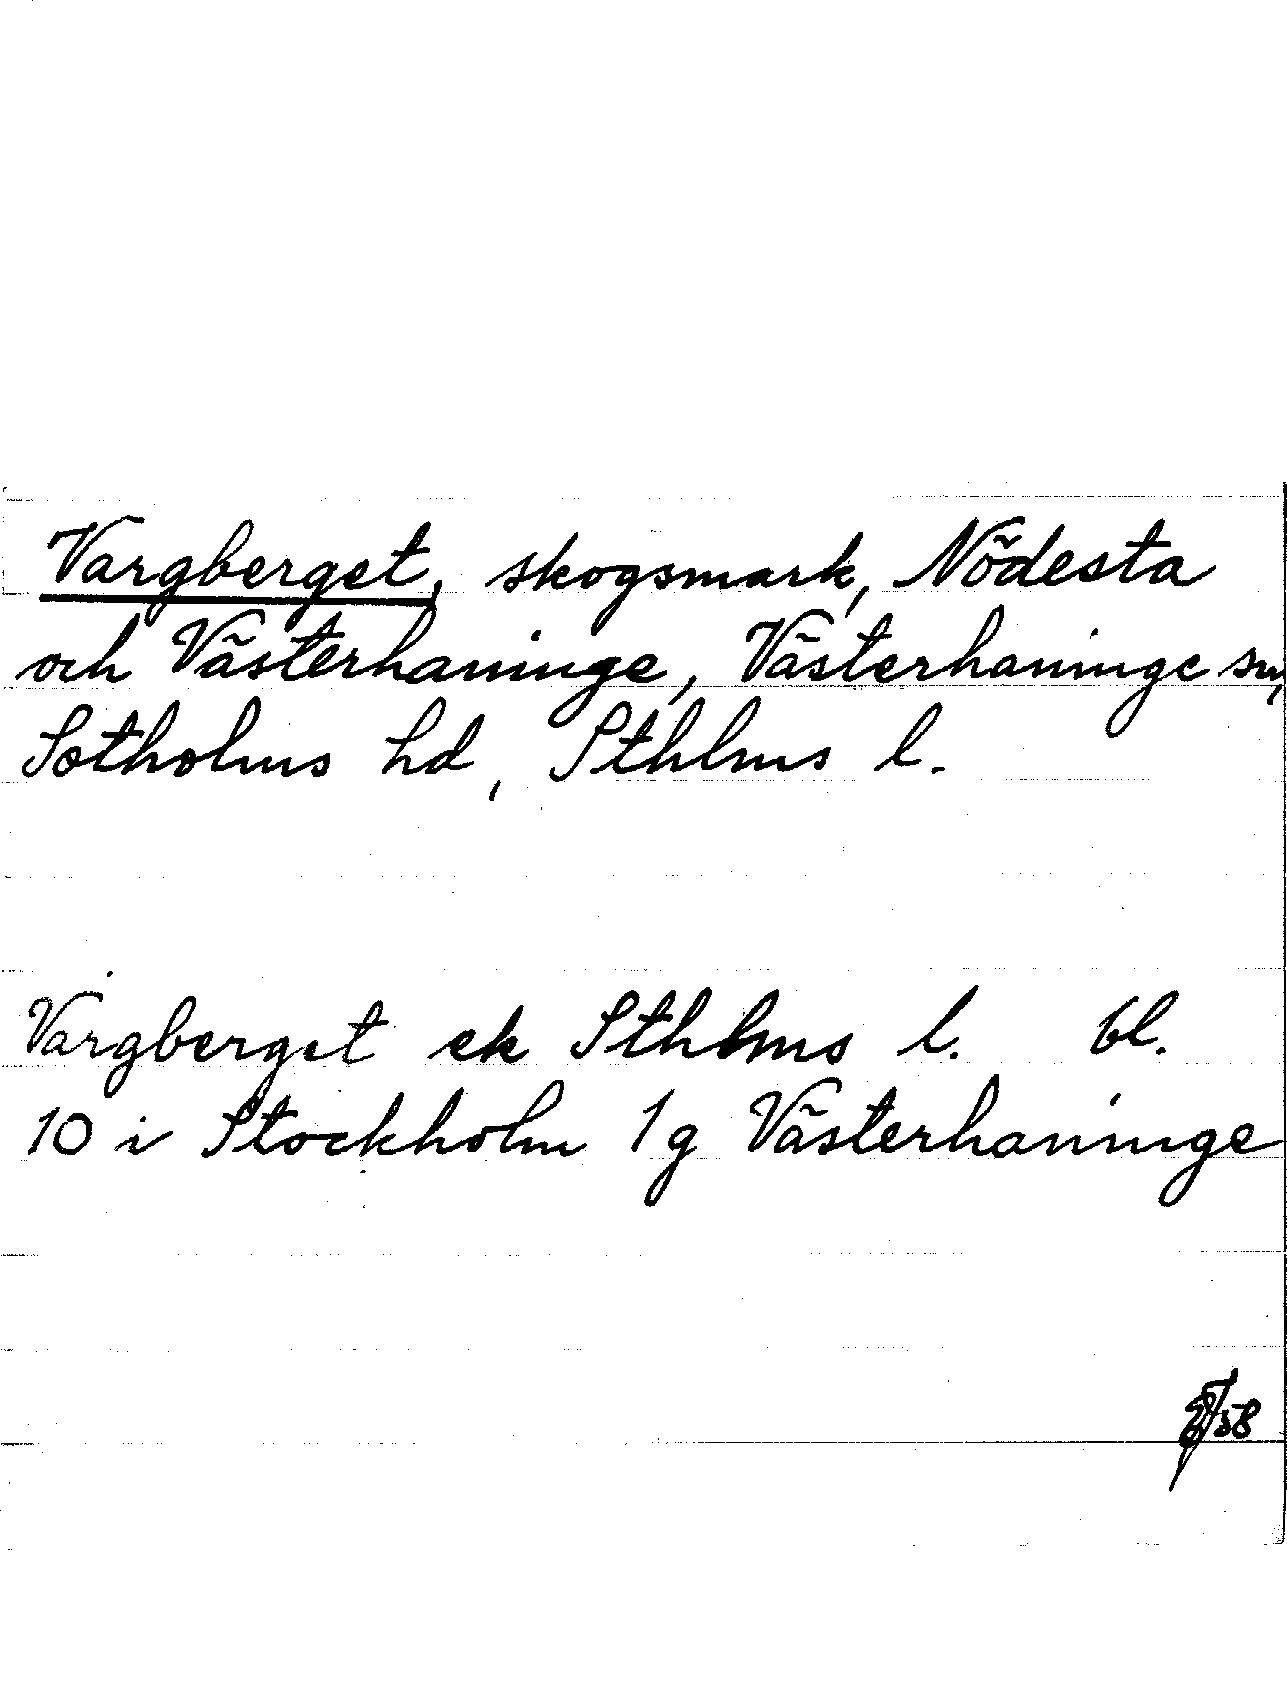 Vargberget, skogsmark, Nödesta
och Västerhaninge, Västerhaninge sn,
Sotholms hd, Sthlms l.
Vargberget ek Sthlms l. bl.
10 i Stockholm 1g Västerhaninge
58